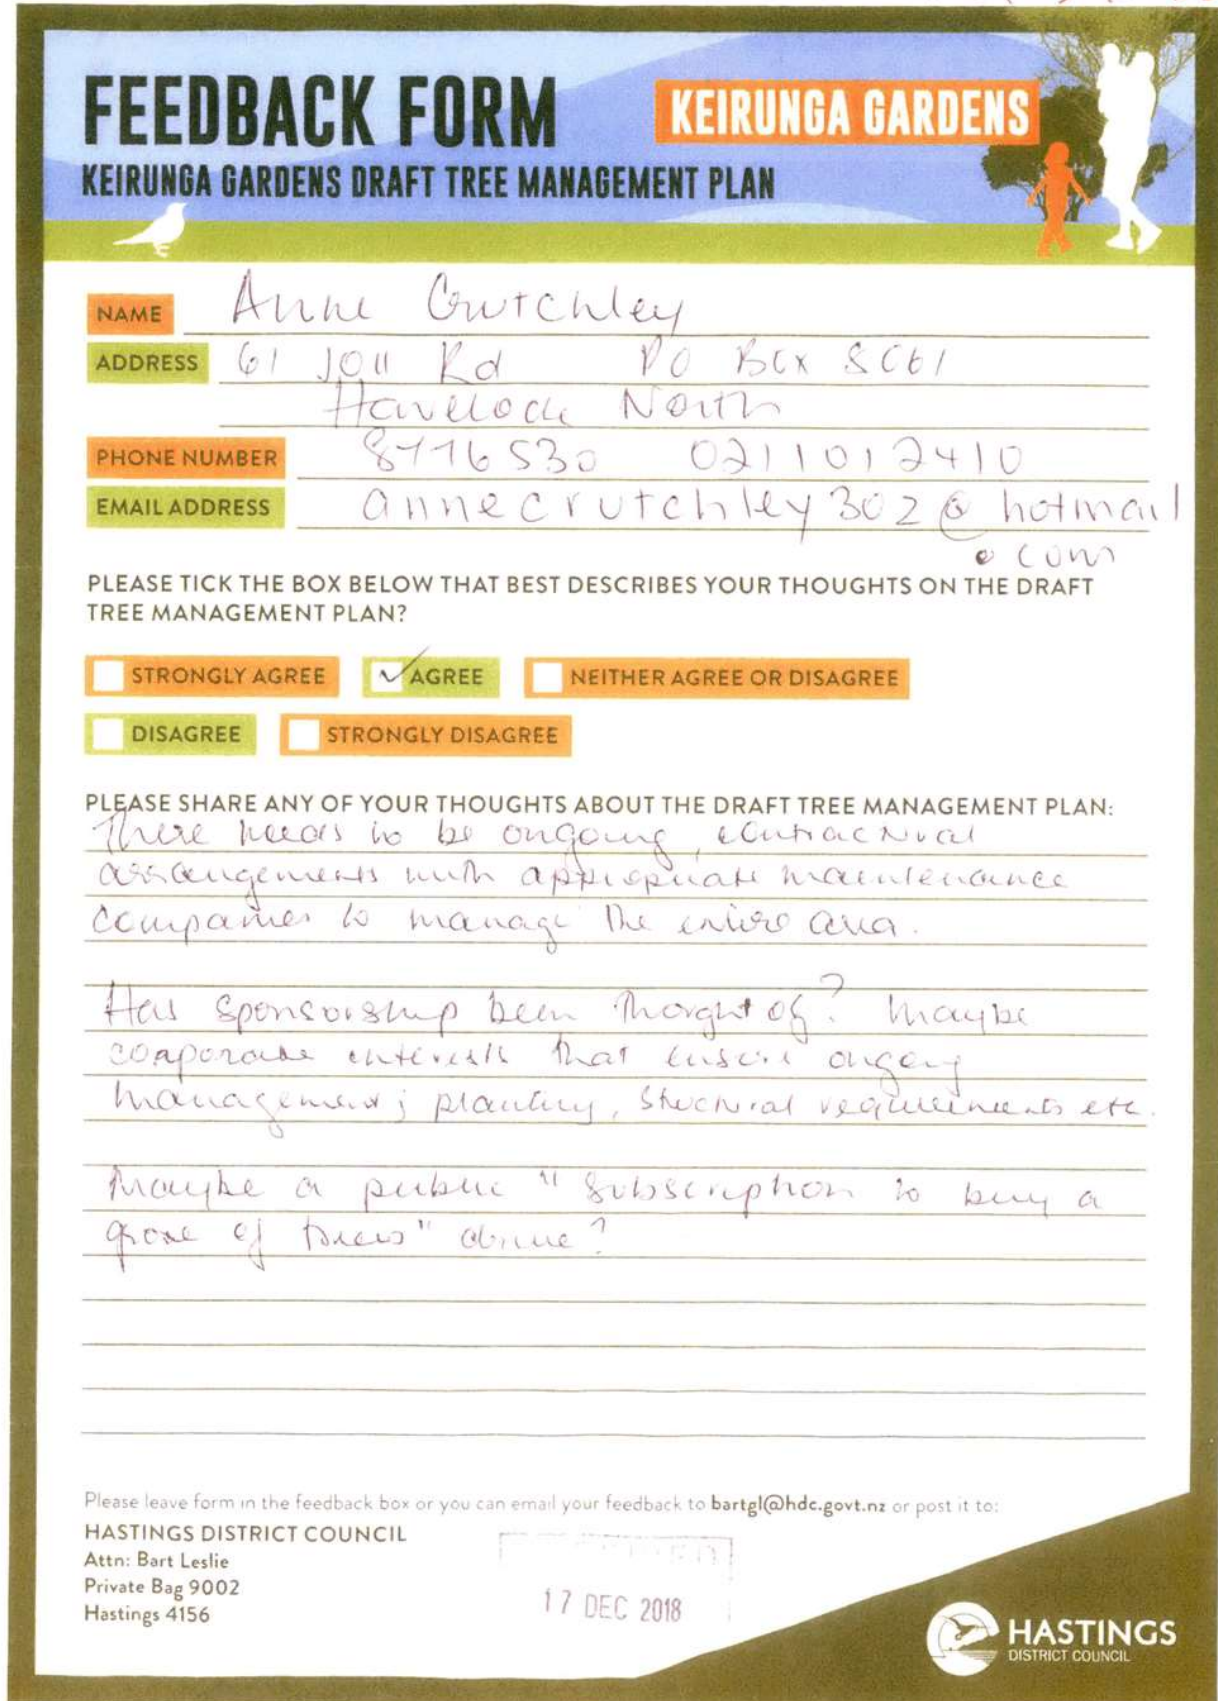 FEEDBACK FORM
KEIRUNGA GARDENS
KEIRUNGA GARDENS DRAFT TREE MANAGEMENT PLAN
NAME Anne Crutchley
ADDRESS 61 Joll Rd PO Box 8061
Havelock North
PHONE NUMBER 8776530 0211012410
EMAIL ADDRESS annecrutchley302@hotmail
.com
PLEASE TICK THE BOX BELOW THAT BEST DESCRIBES YOUR THOUGHTS ON THE DRAFT
TREE MANAGEMENT PLAN?
STRONGLY AGREE ✓ AGREE NEITHER AGREE OR DISAGREE
DISAGREE STRONGLY DISAGREE
PLEASE SHARE ANY OF YOUR THOUGHTS ABOUT THE DRAFT TREE MANAGEMENT PLAN:
There needs to be ongoing contractual
arrangements with appropriate maintenance
companies to manage the entire area.
Has sponsorship been thought of? Maybe
corporate interests that ensure ongoing
management; planting, structural requirements etc.
Maybe a public "subscription to buy a
grove of trees" drive?
Please leave form in the feedback box or you can email your feedback to bartgl@hdc.govt.nz or post it to:
HASTINGS DISTRICT COUNCIL
Attn: Bart Leslie
Private Bag 9002
Hastings 4156
17 DEC 2018
HASTINGS
DISTRICT COUNCIL